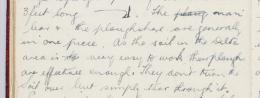 3 feet long. The main
bar & the ploughshare are generally
in one piece. As the soil in the Delta
area is very easy to work these ploughs
are effective enough. They don't turn the
soil over but simply tear through it.